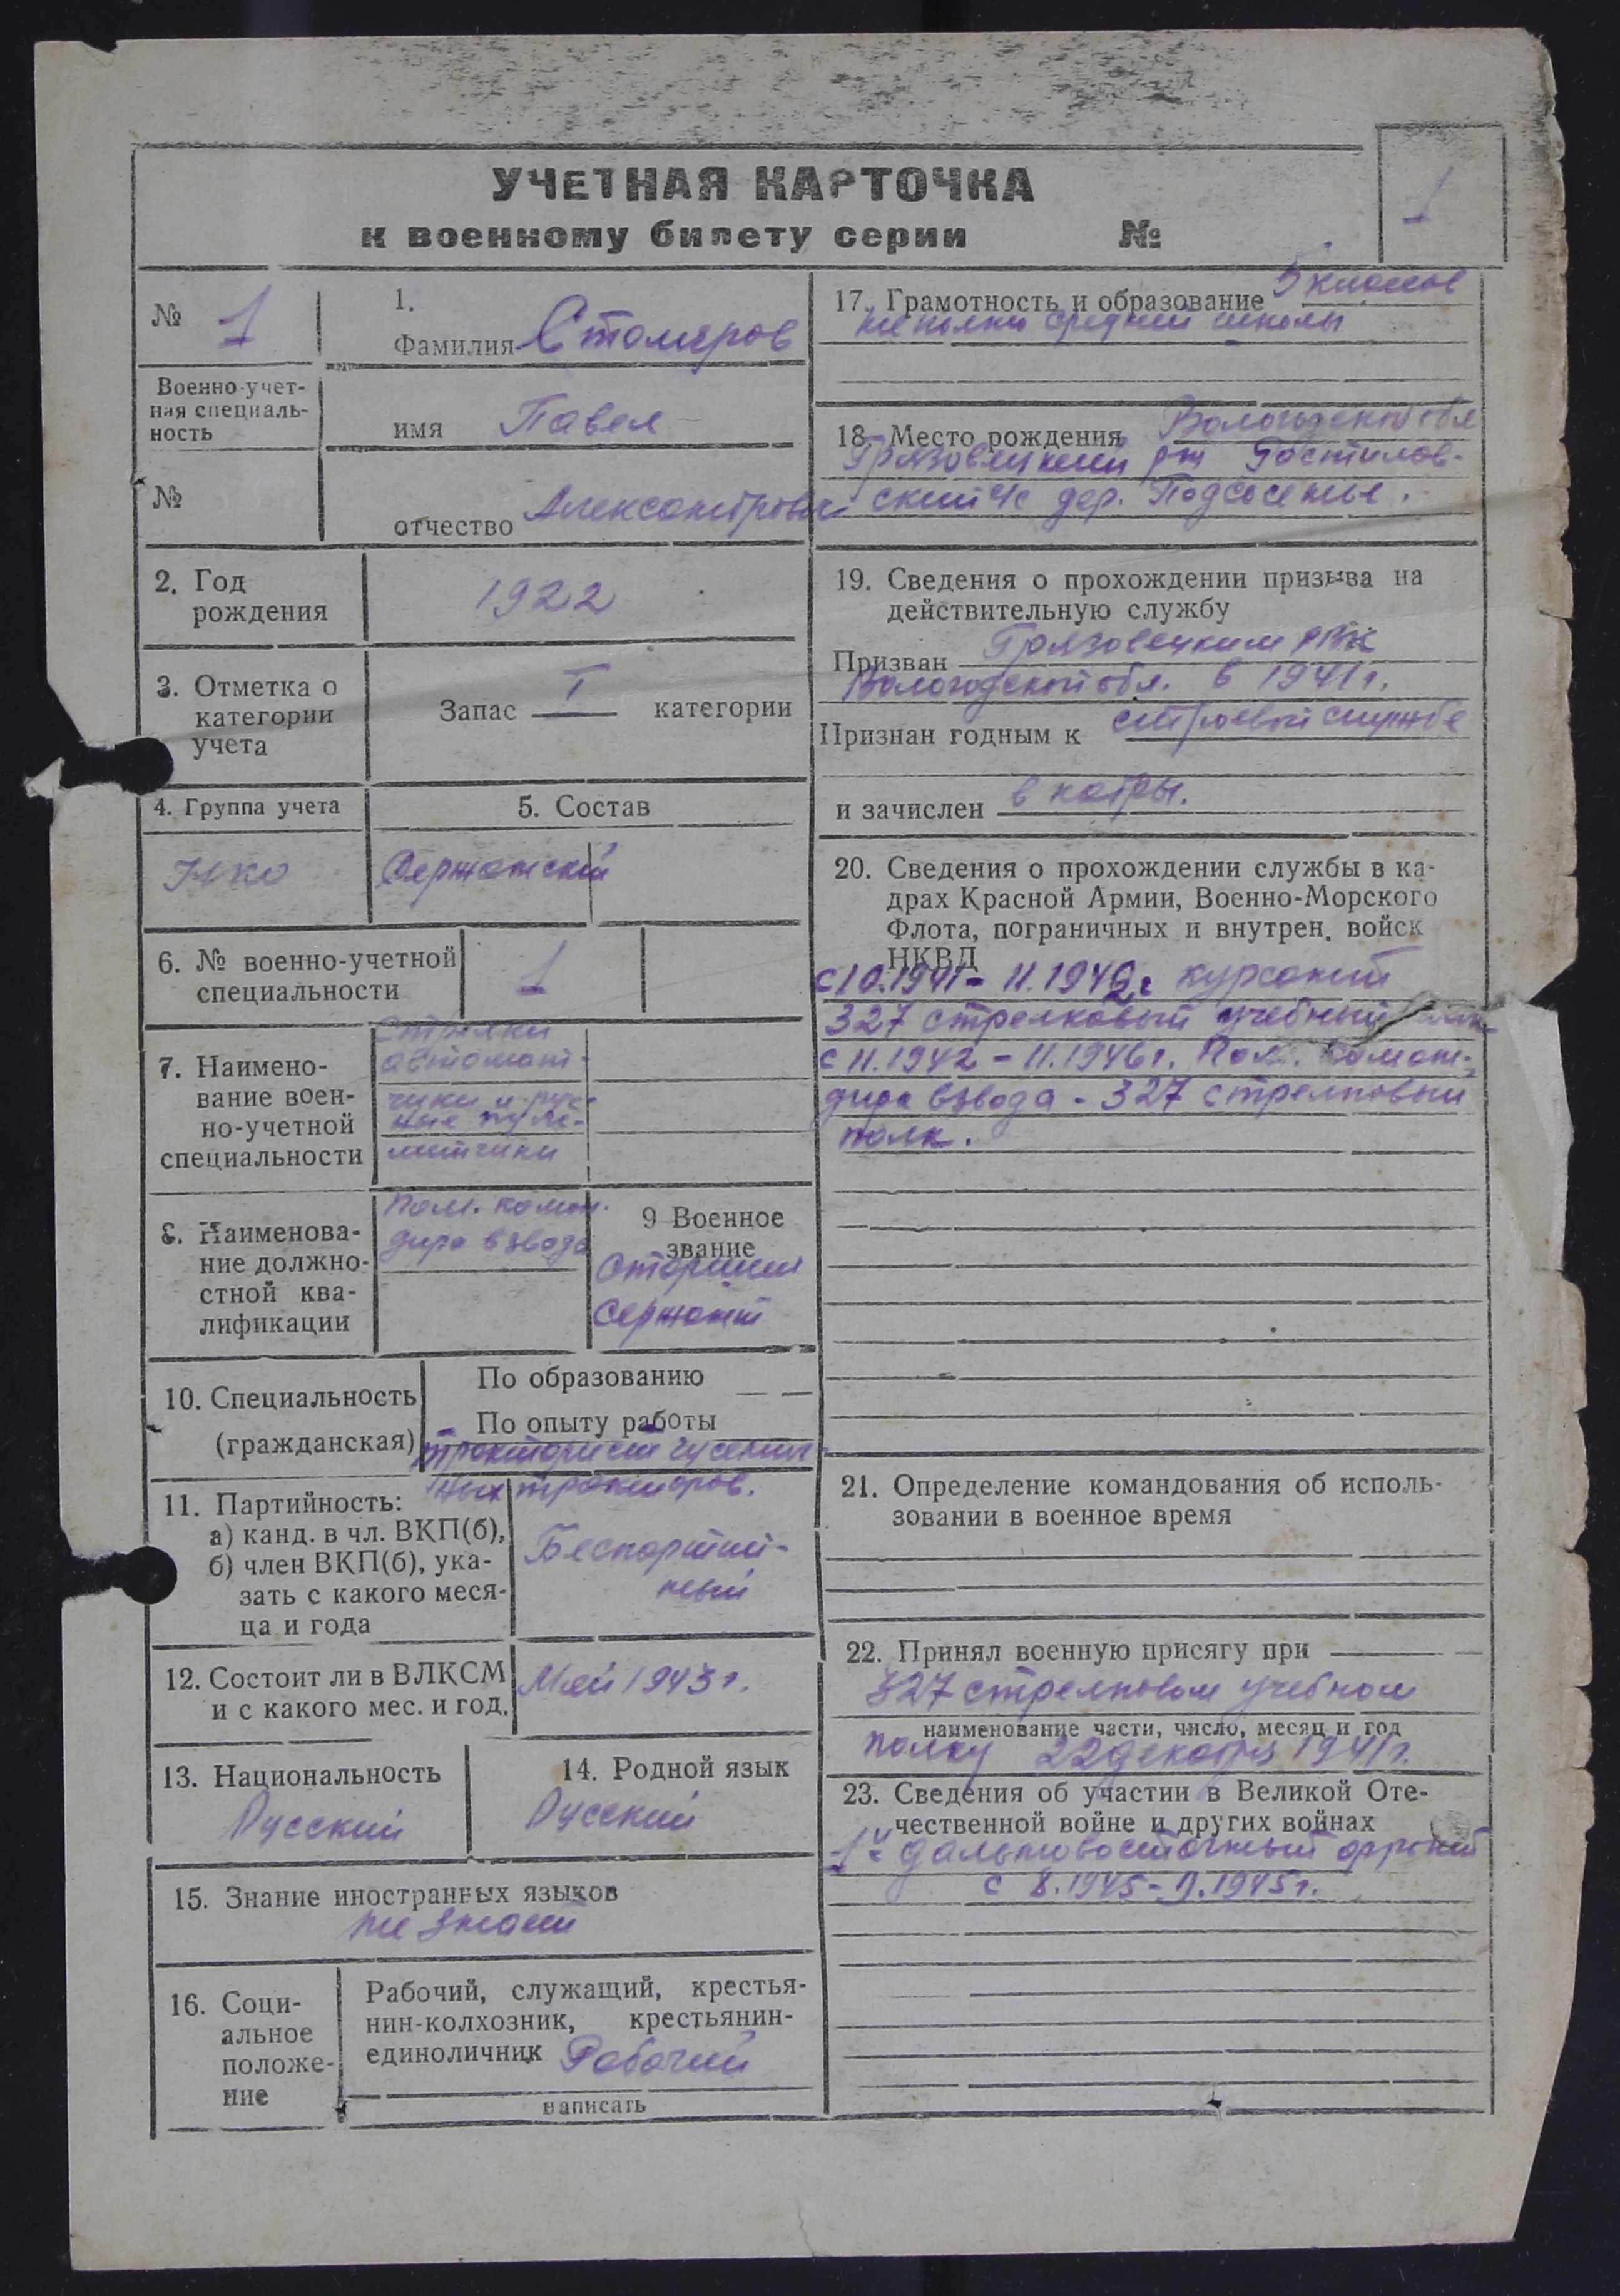 УЧЕТНАЯ КАРТОЧКА
к военному билету серии №
1
№ 1
1.
Фамилия Столяров
Военно-учет-
ная специаль-
ность
имя Павел
№
отчество Александрович
2. Год
рождения
1922
3. Отметка о
категории
учета
Запас I категории
4. Группа учета
5. Состав
Сержантский
6. № военно-учетной
специальности
1
7. Наимено-
вание воен-
но-учетной
специальности
Стрелки
автомат-
чики и руч-
ные пуле-
метчики
8. Наименова-
ние должно-
стной ква-
лификации
Пом. коман.
дира взвода
9 Военное
звание
Старший
Сержант
10. Специальность
(гражданская)
По образованию
По опыту работы
тракторист гусенич-
ных тракторов.
11. Партийность:
а) канд. в чл. ВКП(б),
б) член ВКП(б), ука-
зать с какого меся-
ца и года
Беспартий-
ный
12. Состоит ли в ВЛКСМ
и с какого мес. и год.
Май 1943 г.
13. Национальность
Русский
14. Родной язык
Русский
15. Знание иностранных языков
не знает
16. Соци-
альное
положе-
ние
Рабочий, служащий, крестья-
нин-колхозник, крестьянин-
единоличник Рабочий
написать
17. Грамотность и образование 5 классов
неполн средней школы
18. Место рождения Вологодской обл
Грязовецкий рн Ростилов-
ский с/с дер. Подсосенье.
19. Сведения о прохождении призыва на
действительную службу
Призван Грязовецким РВК
Вологодской обл. в 1941 г.
Признан годным к строевой службе
и зачислен в кадры.
20. Сведения о прохождении службы в ка-
драх Красной Армии, Военно-Морского
Флота, пограничных и внутрен. войск
НКВД
с 10.1941 - 11.1942 г курсант
327 стрелковый учебный
с 11.1942 - 11.1946 г. Пом. коман-
дира взвода - 327 стрелковый
полк.
21. Определение командования об исполь-
зовании в военное время
22. Принял военную присягу при
327 стрелковом учебном
наименование части, число, месяц и год
полку 22 декабря 1941 г.
23. Сведения об участии в Великой Оте-
чественной войне и других войнах
1й дальневосточный фронт
с 8.1945 - 9.1945 г.